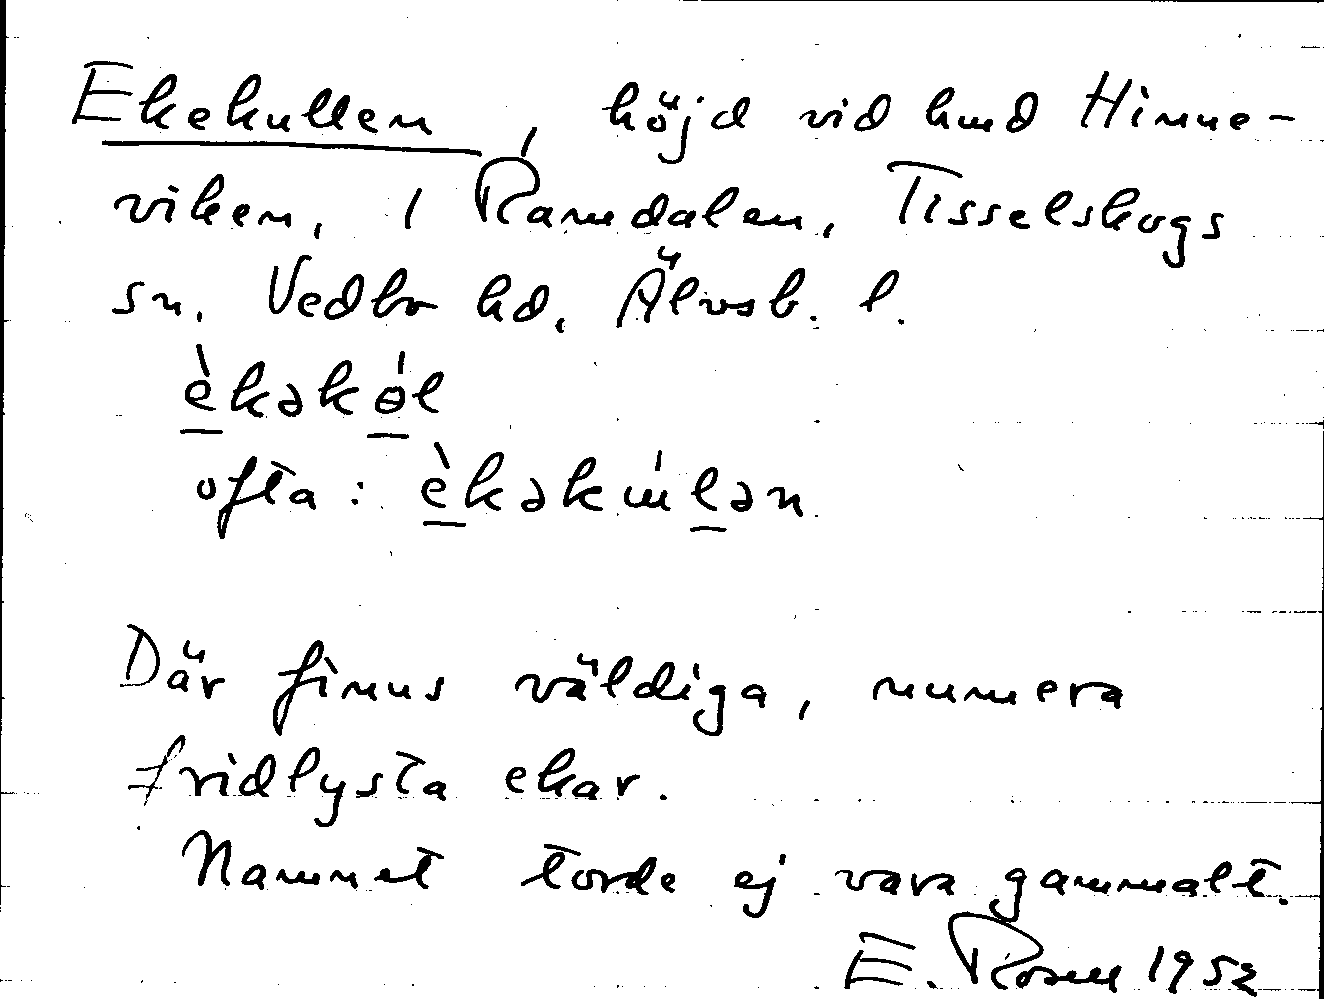 Ekekullen, höjd vid hmd Hinne-
viken, i Ramdalen, Tisselskogs
sn. Vedbo hd. Älvsb. l.
èkəkɵ́l
ofta: èkəkúlən
Där finns väldiga, numera
fridlysta ekar.
Namnet torde ej vara gammalt.
E. Rosell 1952